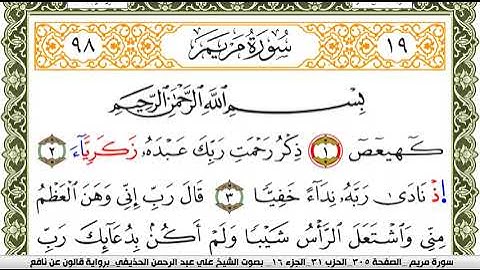 ١٩ سُورَةُ مَرْيَمَ ٩٨
بِسْمِ اللَّهِ الرَّحْمَٰنِ الرَّحِيمِ
كَهيعَصَ ١ ذِكْرُ رَحْمَتِ رَبِّكَ عَبْدَهُۥ زَكَرِيَّآءَ ٢
إِذْ نَادَىٰ رَبَّهُۥ نِدَآءً خَفِيّٗا ٣ قَالَ رَبِّ إِنِّي وَهَنَ اَلْعَظْمُ
مِنِّي وَاشْتَعَلَ اَلرَّأْسُ شَيْبٗا وَلَمْ أَكُنۢ بِدُعَآئِكَ رَبِّ
سورة مريم _ الصفحة ٣٠٥ _ الحزب ٣١ _ الجزء ١٦ _ بصوت الشيخ علي عبد الرحمن الحذيفي _ برواية قالون عن نافع